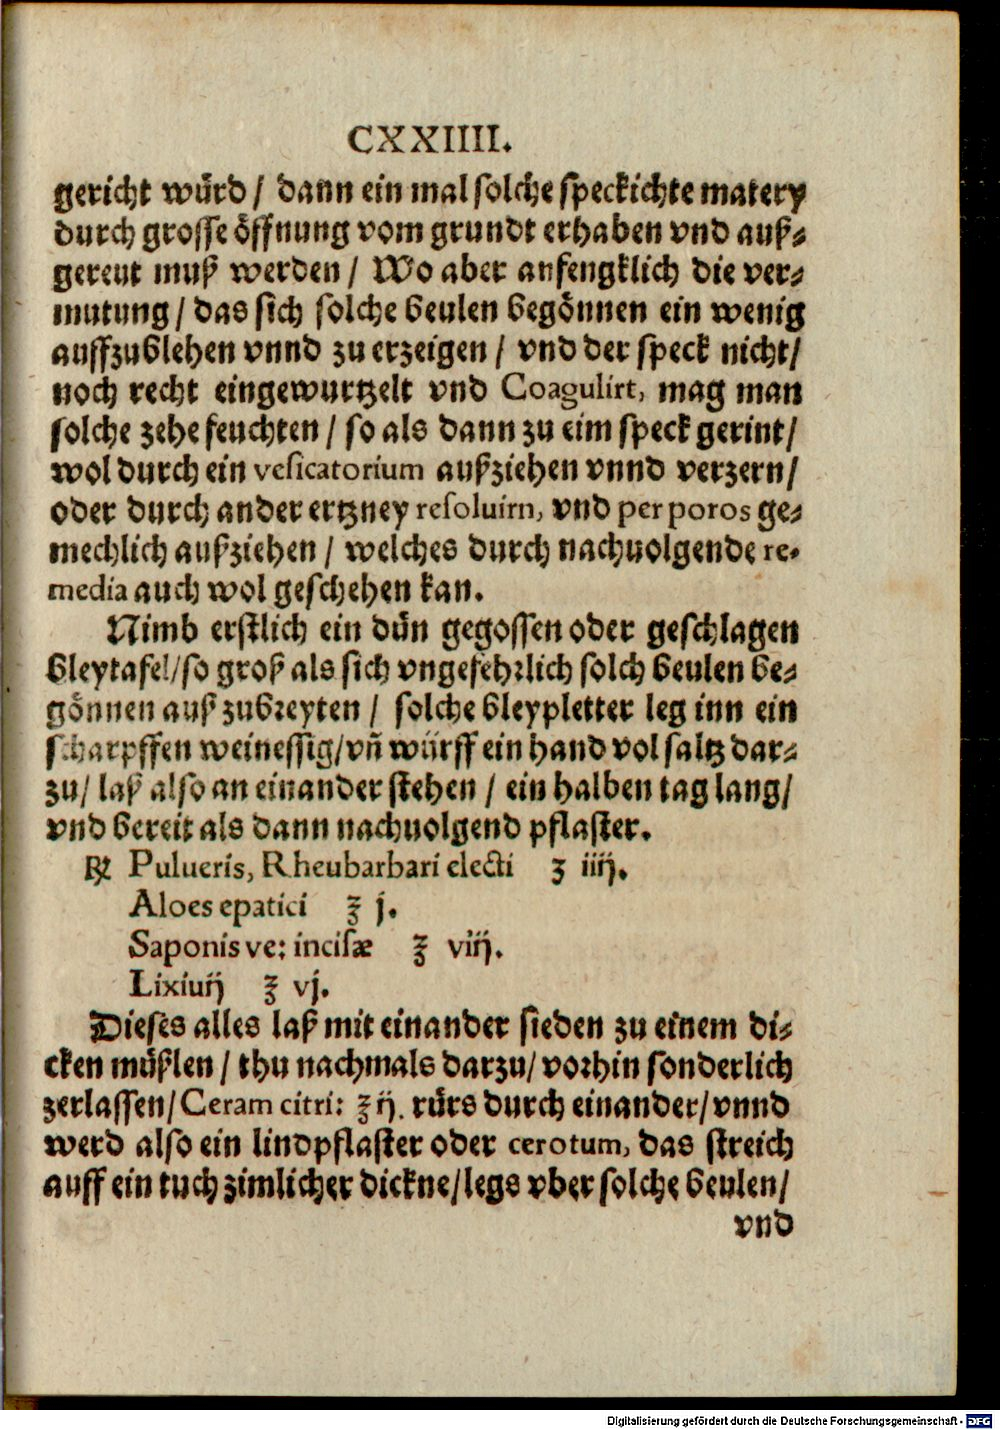 CXXIIII.
gericht wuͤrd / dann ein mal solche speckichte matery
durch grosse oͤffnung vom grundt erhaben vnd auß⸗
gereut muß werden / Wo aber anfengklich die ver⸗
mutung / das sich solche beulen begoͤnnen ein wenig
auffzublehen vnnd zu erzeigen / vnd der speck nicht /
noch recht eingewurtzelt vnd Coagulirt, mag man
solche zehe feuchten / so als dann zu eim speck gerint /
wol durch ein vesicatorium außziehen vnnd verzern /
oder durch ander ertzney resoluirn, vnd per poros ge⸗
mechlich außziehen / welches durch nachuolgende re-
media auch wol geschehen kan.
Nimb erstlich ein duͤn gegossen oder geschlagen
bleytafel / so groß als sich vngefehrlich solch beulen be⸗
goͤnnen auß zubreyten / solche bleypletter leg inn ein
scharpffen weinessig / vn̄ wuͤrff ein hand vol saltz dar⸗
zu / laß also an einander stehen / ein halben tag lang /
vnd bereit als dann nachuolgend pflaster.
℞ Pulueris, Rheubarbari electi ʒ iiij.
Aloes epatici ℥ j.
Saponis ve: incisæ ℥ viij.
Lixiuij ℥ vj.
Dieses alles laß mit einander sieden zu einem di⸗
cken muͤßlen / thu nachmals darzu / vorhin sonderlich
zerlassen / Ceram citri: ℥ ij. ruͤrs durch einander / vnnd
werd also ein lindpflaster oder cerotum, das streich
auff ein tuch zimlicher dickne / legs vber solche beulen /
vnd
Digitalisierung gefördert durch die Deutsche Forschungsgemeinschaft - DFG